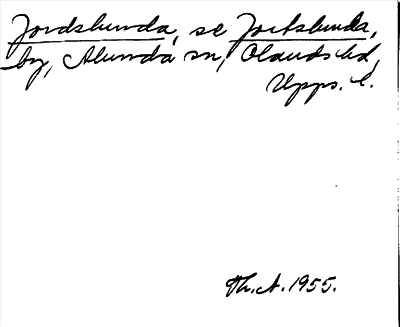 Jordslunda, se Jortslunda,
by, Alunda sn, Olands hd,
Upps. l.
Th.A. 1955.